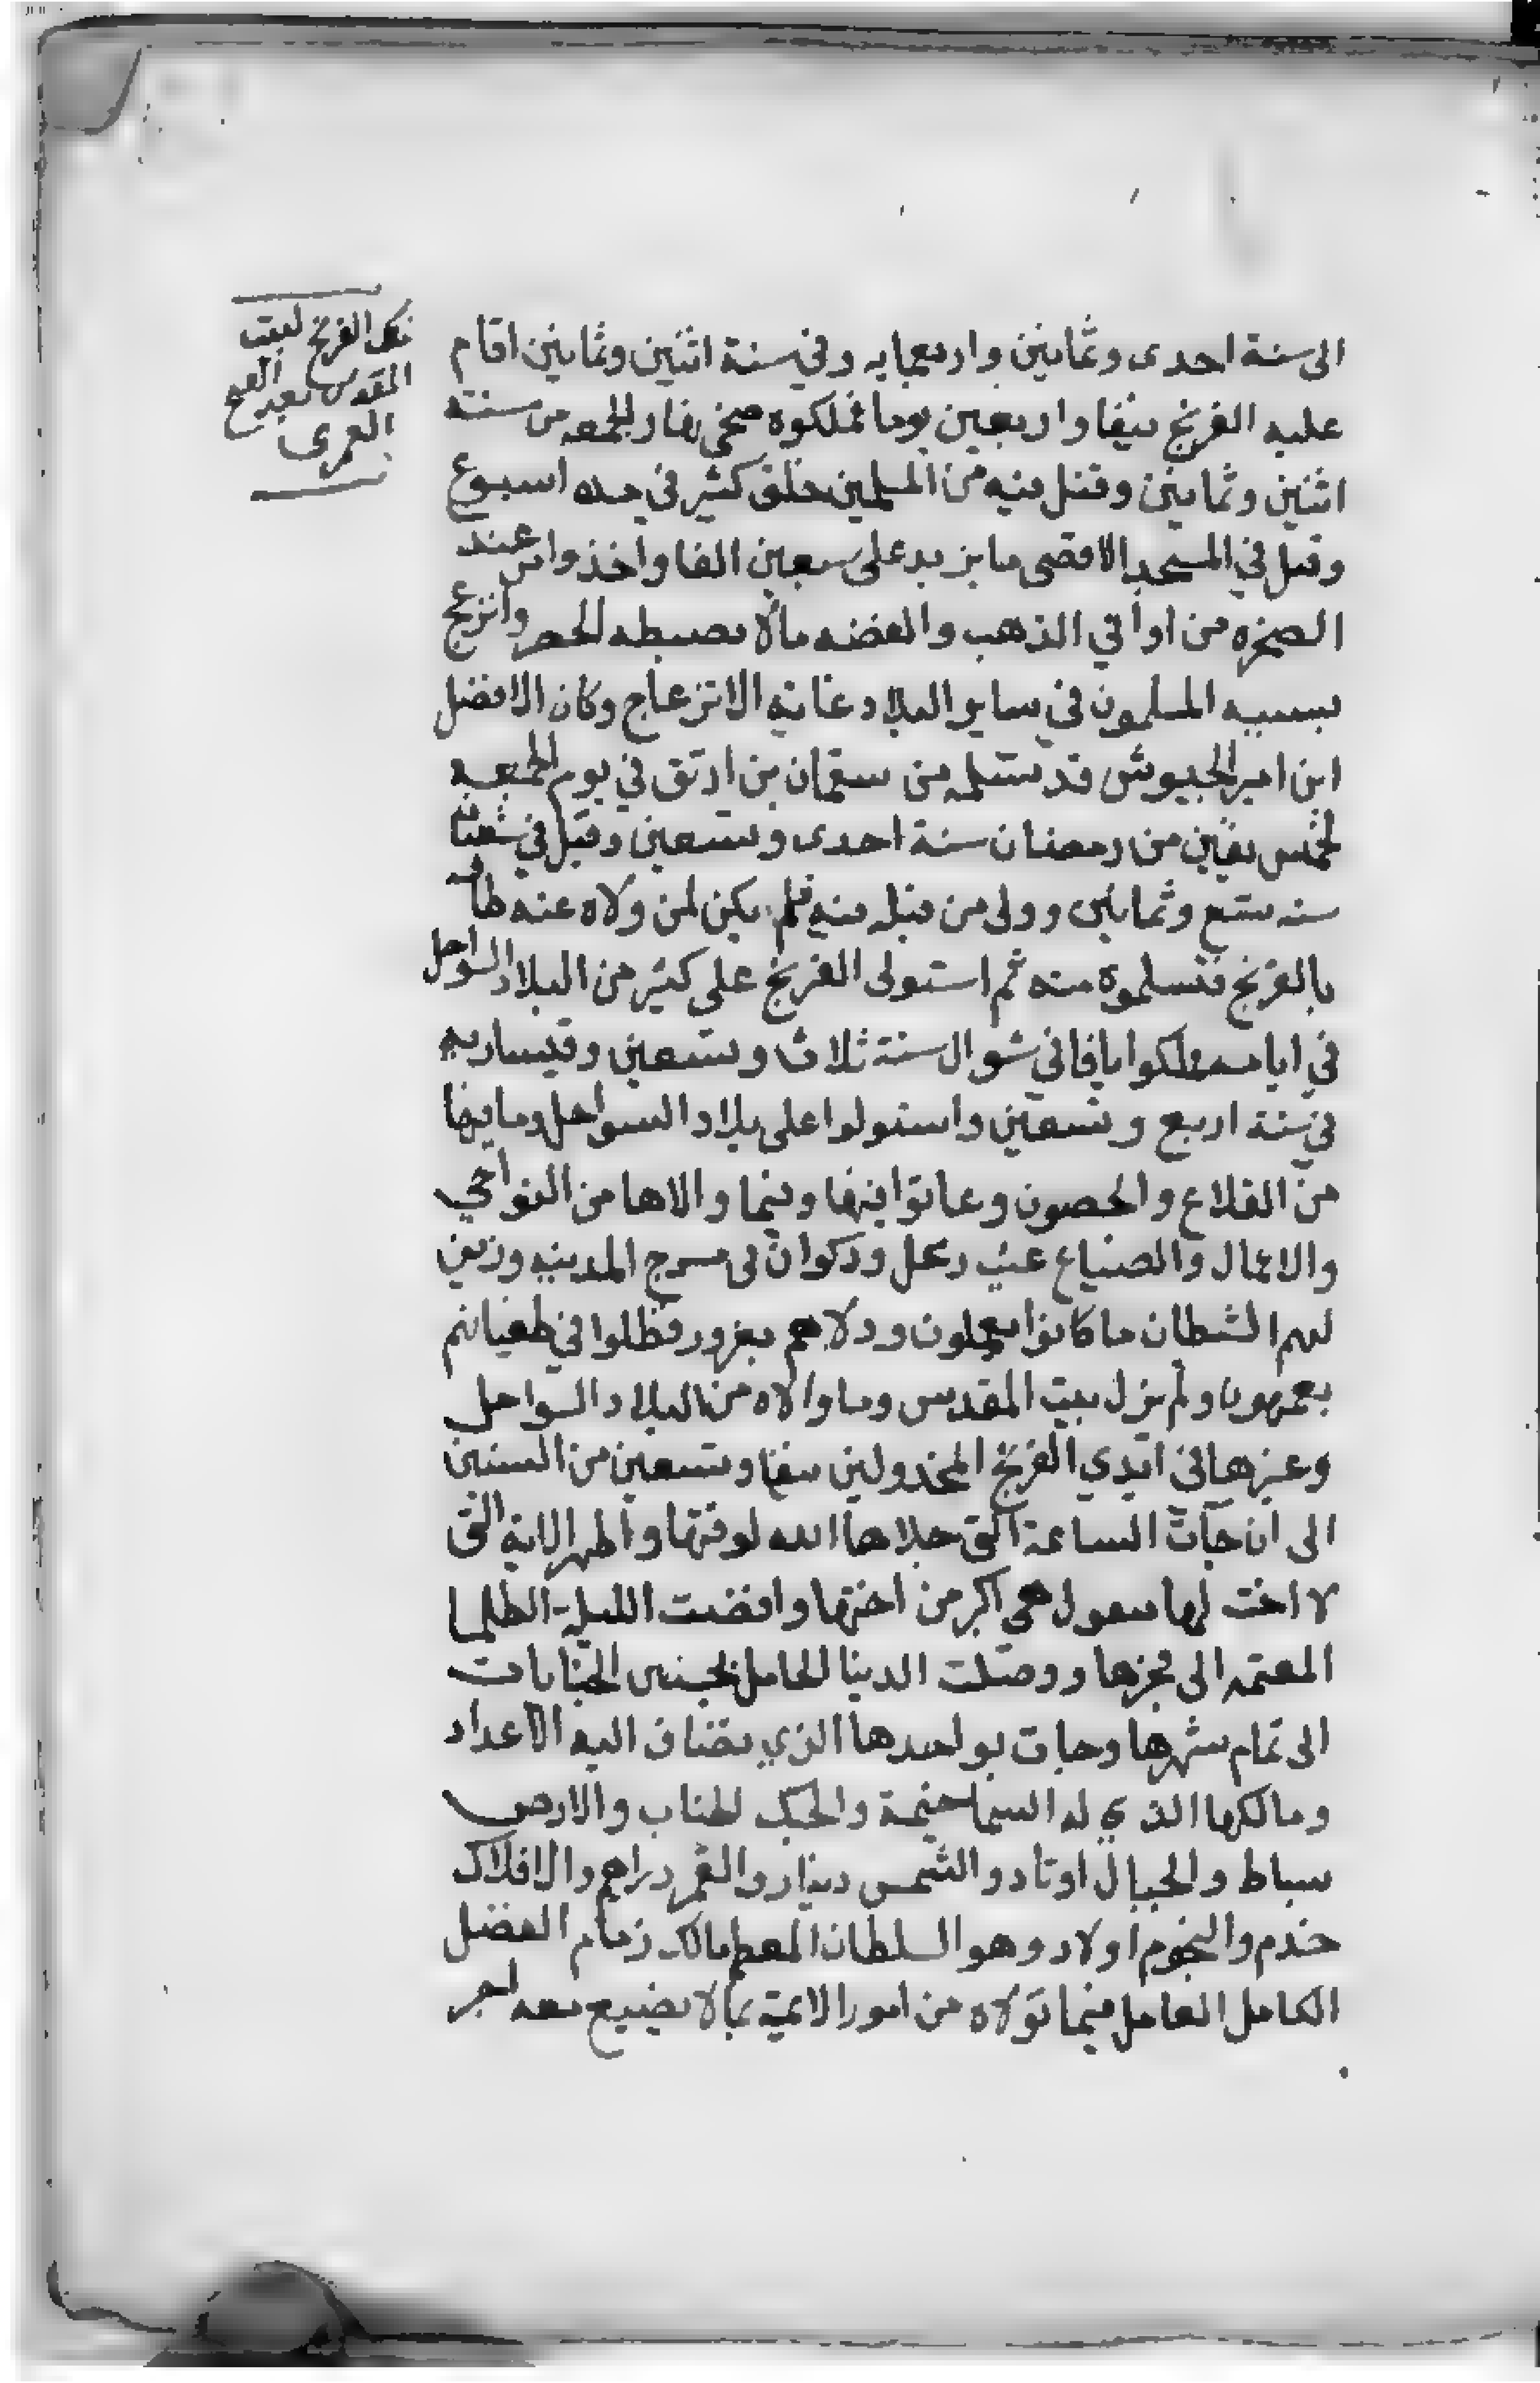 الى سنة احدى وثمانين واربعمايه وفي سنة اثنين وثمانين اقام
عليه الفرنج نيفا واربعين يوما فملكوه ضحى نهار الجمعه من سنة
اثنين وثمانين وقتل فيه من المسلمين خلق كثير في مده اسبوع
وقتل في المسجد الاقصى ما يزيد على سبعين الفا واخذوا من عند
الصخره من اواني الذهب والفضه ما لا يضبطه الحصر وانزعج
بسببه المسلمون في ساير البلاد غاية الانزعاج وكان الافضل
ابن امير الجيوش قد تسلمه من سقمان بن ارتق في يوم الجمعه
لخمس بقين من رمضان سنة احدى وتسعين وقيل في شعبان
سنه تسع وثمانين وولى من قبله فيه فلم يكن لمن ولاه عنه طاقه
بالفرنج فتسلموه منه ثم استولى الفرنج على كثير من البلاد السواحل
في ايامه فملكوا يافا في شوال سنة ثلاث وتسعين وقيساريه
في سنة اربع وتسعين واستولوا على بلاد السواحل وما فيها
من القلاع والحصون وعاثوا فيها وفيما والاها من النواحي
والاعمال والضياع وذكوان في مرج المدينه وزين
لهم الشيطان ما كانوا يعملون ودلاهم بغرور فظلوا في طغيانهم
يعمهون ولم يزل بيت المقدس وما والاه من البلاد السواحل
وغيرها في ايدي الفرنج المخذولين نيفا وتسعين من السنين
الى ان جآت الساعة التي جلاها الله لوقتها واظهر الاية التي
لا اخت لها فيقول هي اكبر من اختها وافضت الليلة الظلما
المعتمه الى فجرها ووصلت الدنيا الحامل
الى تمام شهرها وجات بواحدها الذي تضاف اليه الاعداد
ومالكها الذي له السما خيمة والحبك اطناب والارض
بساط والجبال اوتاد والشمس دينار والقمر دراهم والافلاك
خدم والنجوم اولاد وهو السلطان المعظم مالك زمام الفضل
الكامل العامل فيما تولاه من امور الامة بما لا يضيع معه اجر
الفرنج لبيت
المقدس بعد الفتح
العمري